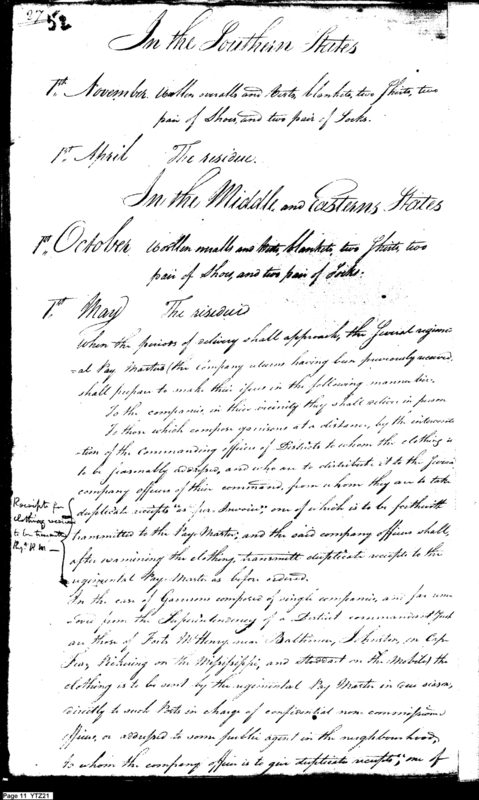 27 52
In the Southern States
1st. November. Woollen overalls and vests, blankets, two Shirts, two
pair of Shoes, and two pair of Socks.
1st April The residue.
In the Middle and Easterns States
1st. October Woollen overalls and vests, blankets, two Shirts, two
pair of Shoes, and two pair of Socks.
1st. May The residue
When the periods of delivery shall approach, the several regimen
=al Pay Masters (the company returns having been previously received)
shall prepare to make their issues in the following manner viz.
To the companies in their vicinity they shall deliver in person
To those which compose garrisons at a distance, by the interven
=tion of the Commanding officers of Districts to whom the clothing is
to be seasonably addressed, and who are to distribute it to the several
company officers of their command, from whom they are to take
duplicate receipts "as per Invoice" one of which is to be forthwith
transmitted to the Pay Master, and the said company officers shall,
after examining the clothing, transmit duplicate receipts to the
regimental Pay Master as before ordered.
Receipts for
clothing
to be
In the case of Garrisons composed of single companies, and far rem
=oved from the Superintendency of a District commandant such
as those of Forts McHenry near Baltimore, Johnston, on Cape
Fear, Pickering on the Mississippi, and Stoddart on the Mobile, the
clothing is to be sent by the regimental Pay Master in due season,
directly to such Posts in charge of confidential non commissioned
officers, or addressed to some public agent in the neighbourhood,
to whom the company officer is to give duplicate receipts, one of
Page 11 YTZ21